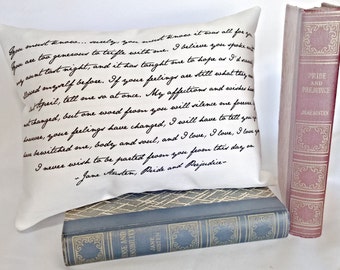 You must know... surely, you must know it was all for you
You are too generous to trifle with me. I believe you spoke
last night, and it has taught me to hope as I
myself before. If your feelings are still what they
last April, tell me so at once. My affections and wishes have
not changed, but one word from you will silence me forever
however, your feelings have changed, I will have to tell you
have bewitched me, body and soul, and I love, I love, I love
I never wish to be parted from you from this day on
-Jane Austen, Pride and Prejudice-
PRIDE
AND
PREJUDICE
JANE AUSTEN